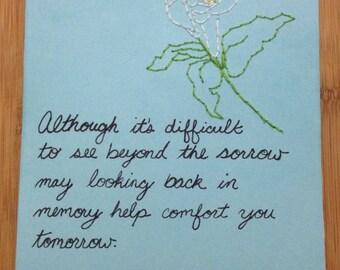 Although it's difficult
to see beyond the sorrow
may looking back in
memory help comfort you
tomorrow.